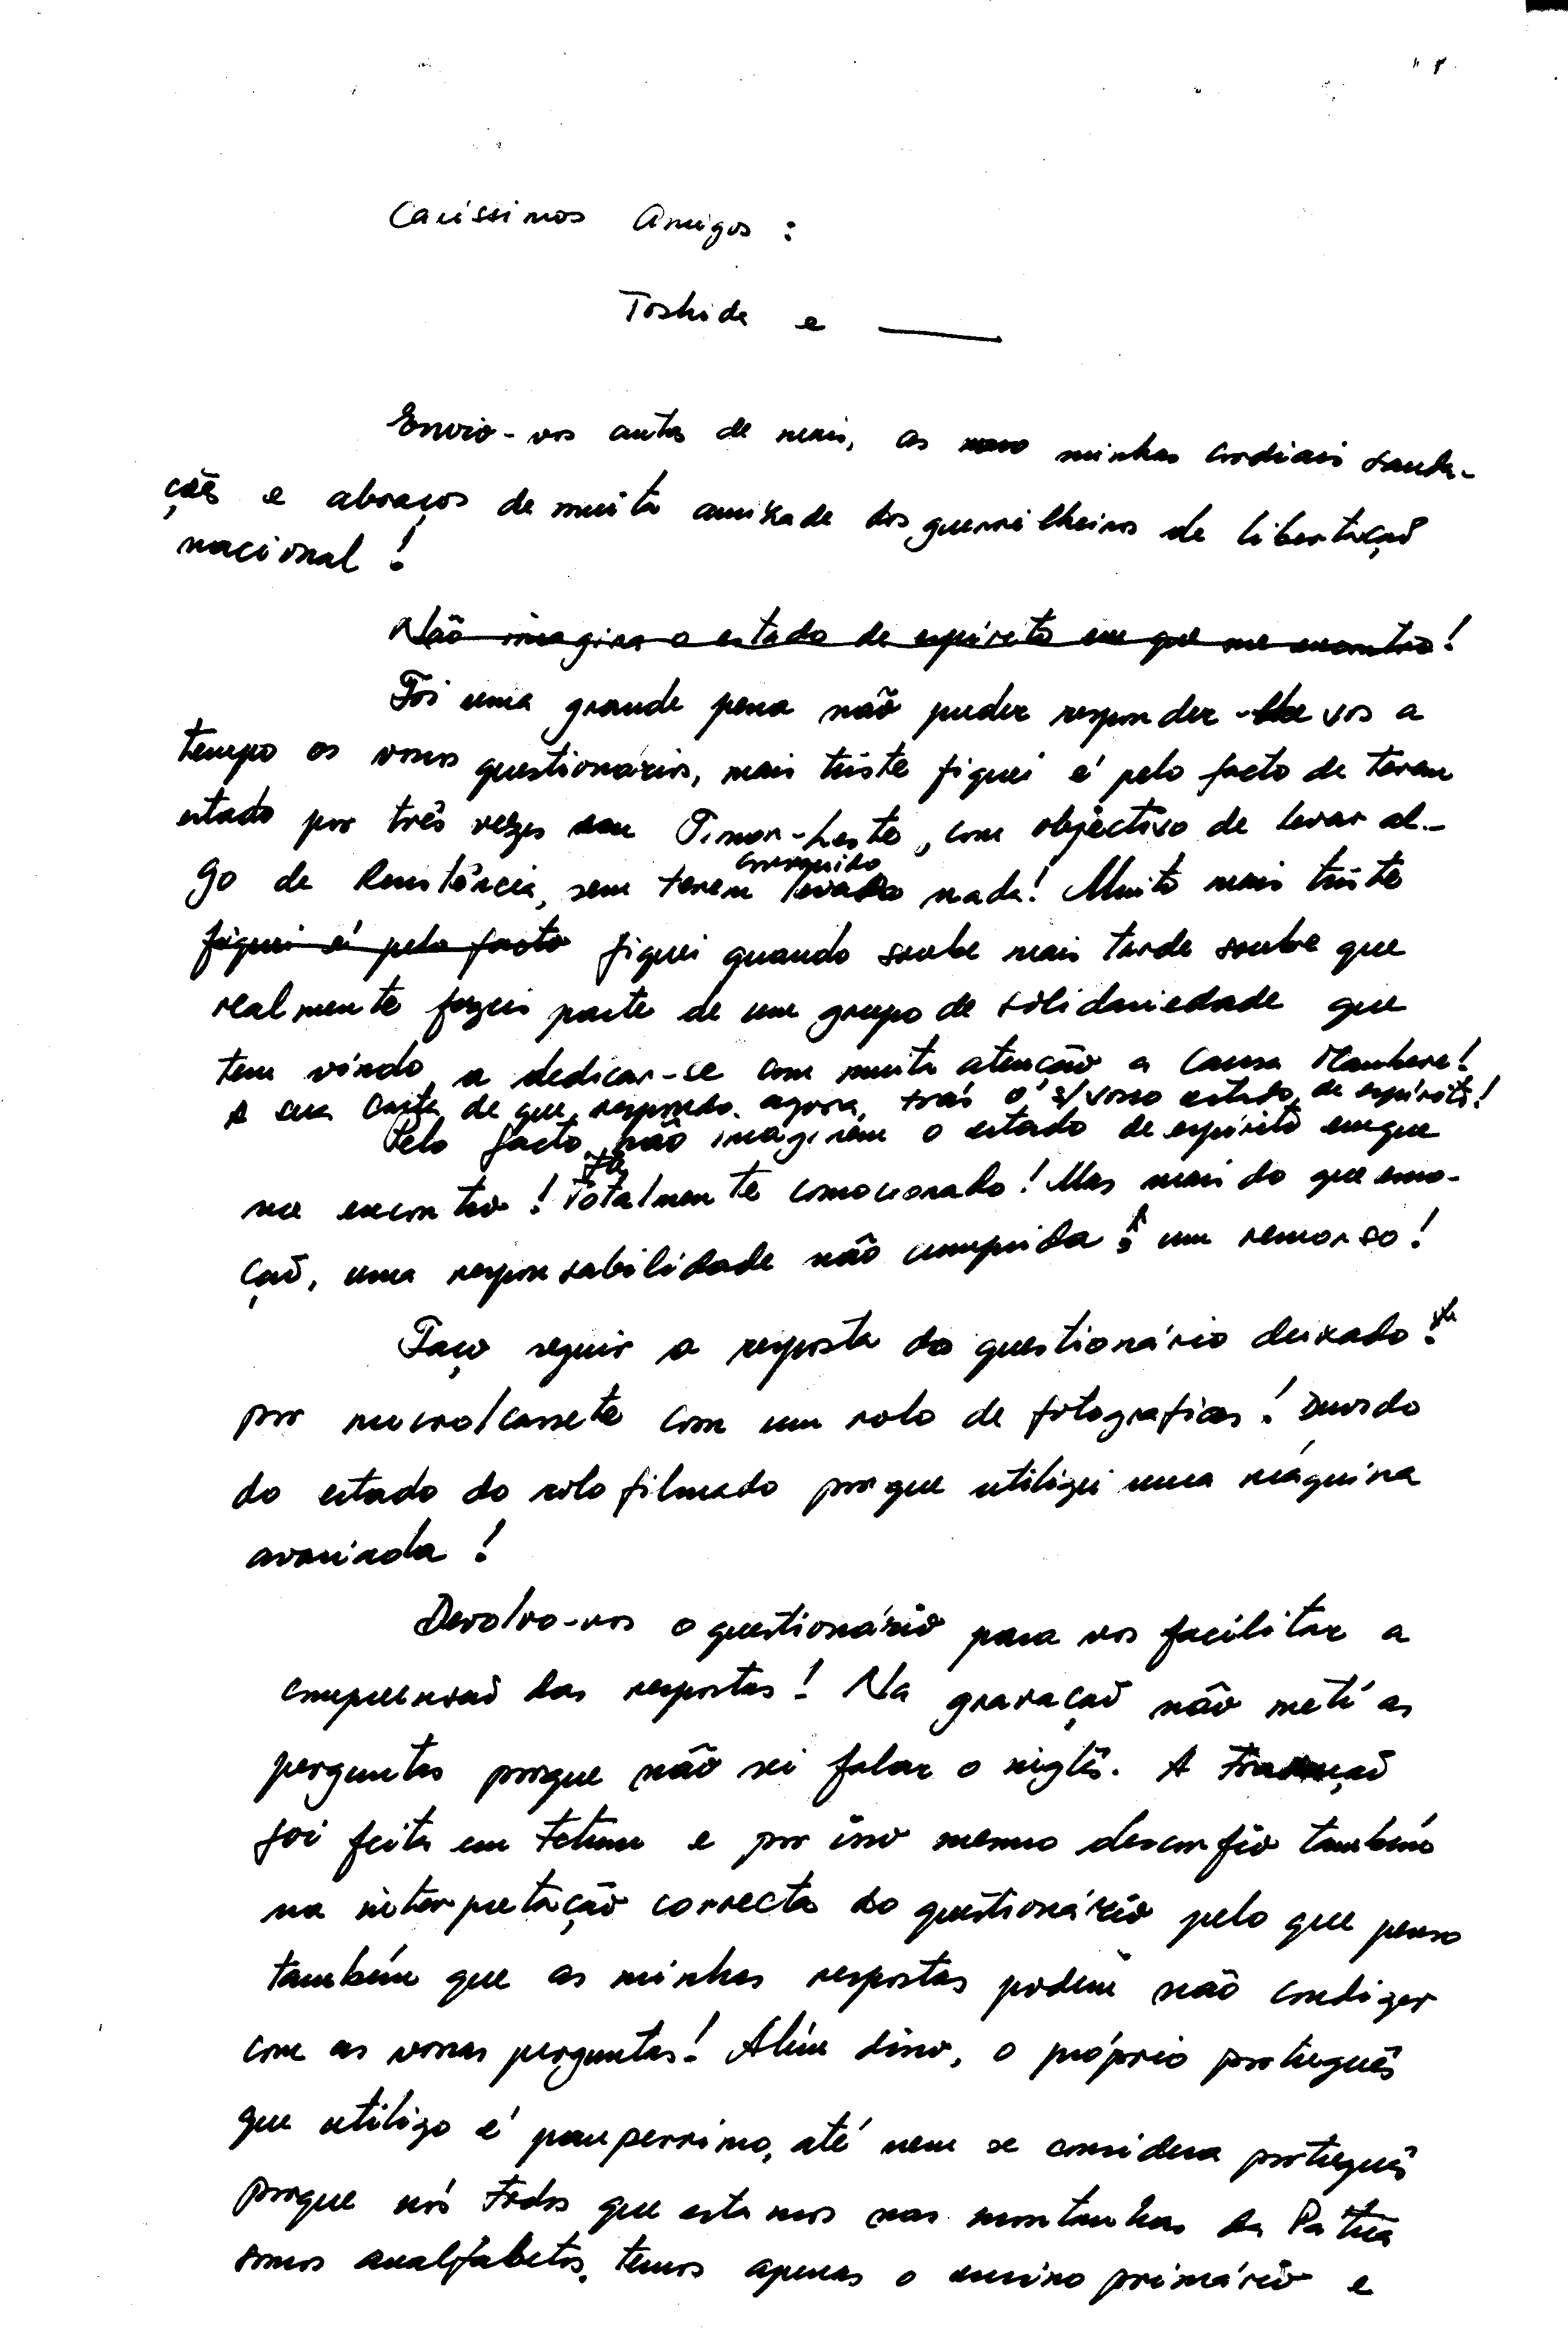 Caríssimos Amigos :
Toshide e ———
Envio-vos antes de mais, as minhas cordiais sauda-
ções e abraços de muita amizade dos guerrilheiros de libertação
nacional !
Não imagina o estado de espírito em que me encontro !
Foi uma grande pena não puder responder-vos a
tempo os vossos questionários, mais triste fiquei é pelo facto de terem
estado por três vezes em Timor-Leste, com objectivo de levar al-
go de Resistência, sem terem conseguido levado nada! Muito mais triste
fiquei é pelo facto fiquei quando soube mais tarde soube que
realmente fazeis parte de um grupo de solidariedade que
tem vindo a dedicar-se com muita atenção a Causa Maubere!
A sua carta de que respondo agora, trás o s/vosso estado de espírito!
Pelo facto, não imaginem o estado de espírito em que
me encontro ! Totalmente comocionado! Mas mais do que emo-
ção, uma responsabilidade não cumprida é um remorso!
Faço seguir a resposta do questionário deixado
por micro/cassete com um rolo de fotografias! Duvido
do estado do rolo filmado porque utilizei uma máquina
avariada !
Devolvo-vos o questionário para vos facilitar a
compreensão das respostas! Na gravação não meti as
perguntas porque não sei falar o inglês. A tradução
foi feita em Tetum e por isso mesmo desconfio também
na interpretação correcta do questionário pelo que penso
também que as minhas respostas podem não condizer
com as vossas perguntas! Além disso, o próprio português
que utilizo é pauperrimo, até nem se considera português
porque nós todos que estamos nas montanhas da Pátria
somos analfabetos, temos apenas o ensino primário e